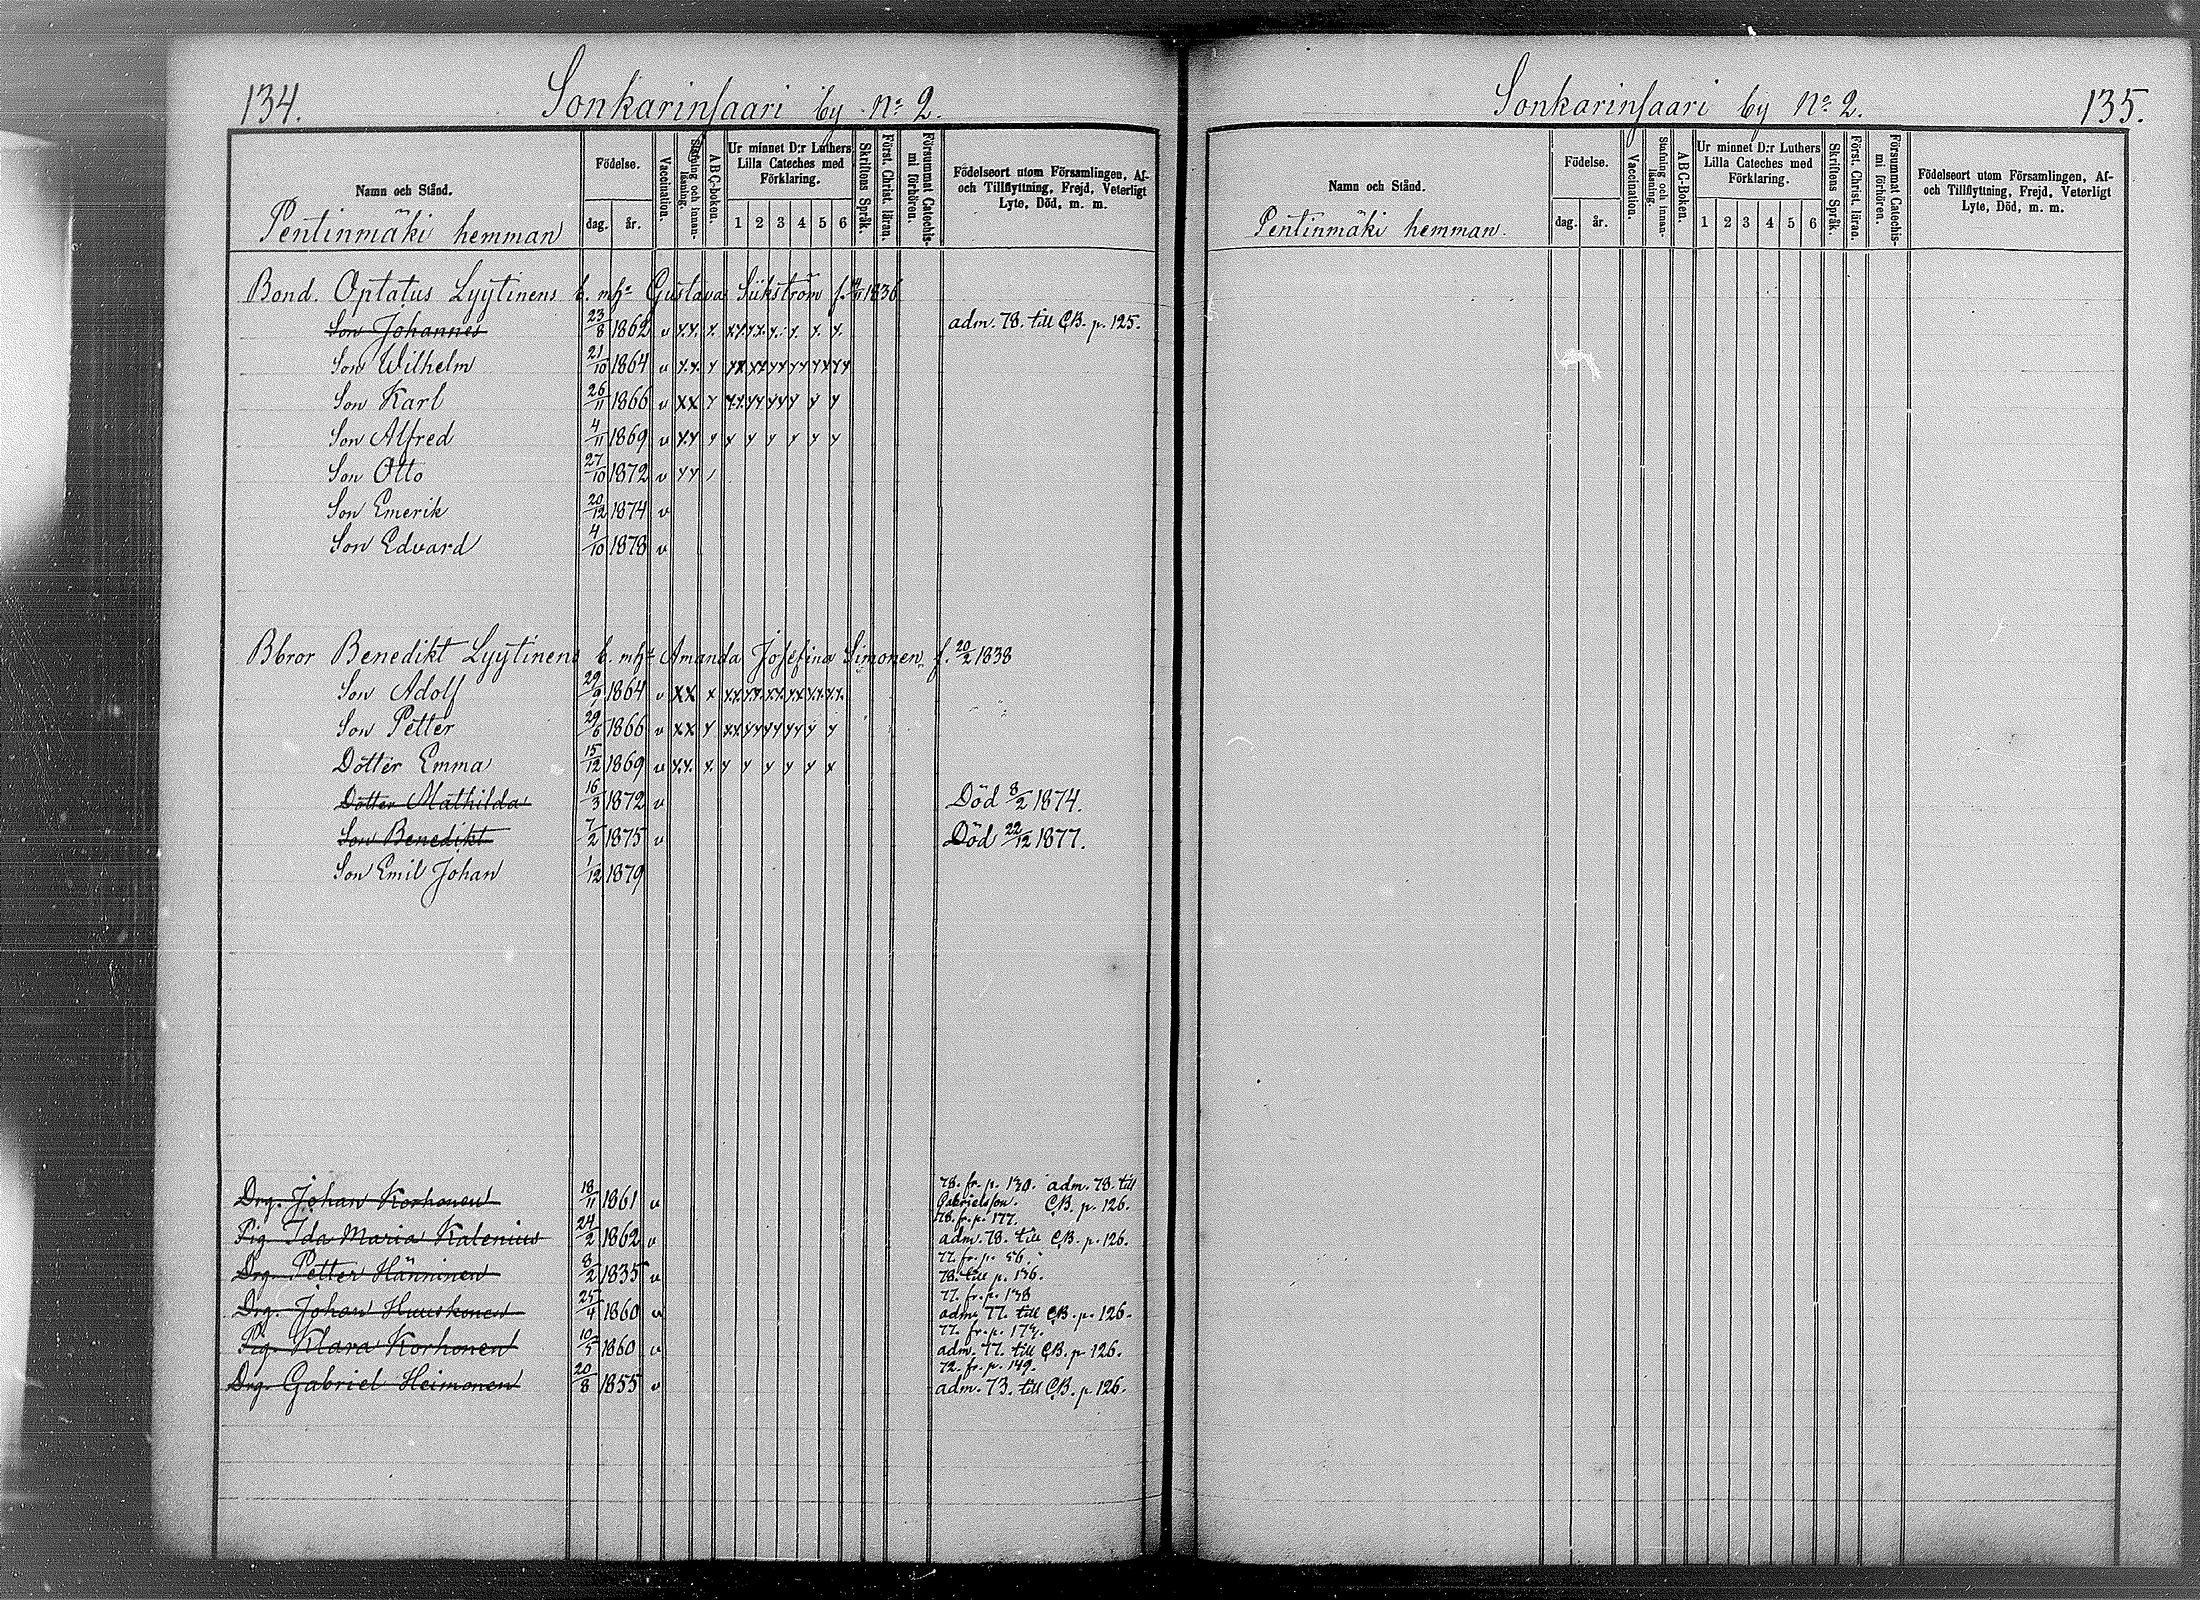 134. Sonkarinsaari by No 2.
Namn och Stånd.
Födelse.
dag. år.
Vaccination.
Stafning och innan-läsning.
ABC-boken.
Ur minnet D:r Luthers
Lilla Cateches med
Förklaring.
1 2 3 4 5 6
Skriftens Språk.
Först. Christ. läran.
Försummat Catechis-mi förhören.
Födelseort utom Församlingen, Af-
och Tillflyttning, Frejd, Veterligt
Lyte, Död, m. m.
Pentinmäki hemman
Bond. Optatus Lyytinens b. mh:a Gustava f. 1836
Son Johannes 23/8 1862 v x.x. x. xx xx. x. x. x. x. adm. 78. till C.B. p. 125.
Son Wilhelm 21/10 1864 v x.x. x xx xx xx xx xx xx
Son Karl 26/11 1866 v xx x xx xx xx x x x
Son Alfred 4/11 1869 v xx x x x x x x x
Son Otto 27/10 1872 v xx /
Son Emerik 20/12 1874 v
Son Edvard 4/10 1878 v
Bbror Benedikt Lyytinens b. mh:a Amanda Josefina Simonen f. 20/2 1838
Son Adolf 29/9 1864 v xx x x.x. x.x. x.x. xx x.x. x.x.
Son Petter 29/6 1866 v xx x xx xx xx xx x x
Dotter Emma 15/12 1869 v x.x. x. x x x x x x
Dotter Mathilda 16/3 1872 v Död 8/2 1874.
Son Benedikt 7/2 1875 v Död 22/12 1877.
Son Emil Johan 1/12 1879
Drg. Johan Korhonen 18/11 1861 v 78. fr. p. 130. adm. 78. till
Gabrielsson. C.B. p. 126.
78. fr. p. 177.
Pig. Ida Maria Kalenius 24/2 1862 v adm. 78. till C.B. p. 126.
77. fr. p. 56.
Drg. Petter Hänninen 8/2 1835 v 78. till p. 136.
77. fr. p. 138
Drg. Johan Huuskonen 25/4 1860 v adm. 77. till C.B. p. 126.
77. fr. p.
Pig. Klara Korhonen 10/5 1860 v adm. 77. till C.B. p. 126.
72. fr. p. 149.
Drg. Gabriel Heimonen 20/8 1855 v adm. 73. till C.B. p. 126.
Sonkarinsaari by No 2. 135.
Namn och Stånd.
Födelse.
dag. år.
Vaccination.
Stafning och innan-läsning.
ABC-Boken.
Ur minnet D:r Luthers
Lilla Cateches med
Förklaring.
1 2 3 4 5 6
Skriftens Språk.
Först. Christ. läran.
Försummat Catechis-mi förhören.
Födelseort utom Församlingen, Af-
och Tillflyttning, Frejd, Veterligt
Lyte, Död, m. m.
Pentinmäki hemman.